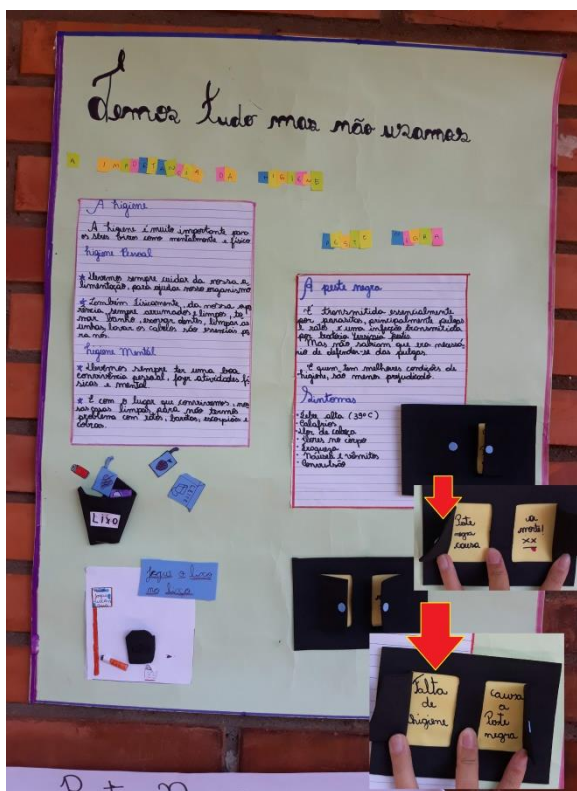 Temos tudo mas não usamos
A IMPORTÂNCIA DA HIGIENE
A higiene
A higiene é muito importante para
os seres bivos como mentalmente e físico
higiene Pessoal
* Devemos sempre cuidar da nossa a
limentação, para ajudar nosso organismo
* Também fisicamente, da nossa apa
rência, sempre arrumados e limpos, to
mar banho, escovar dentes, limpar as
unhas, lavar os cabelos são essenciais pa
ra nós.
higiene Mental
* Devemos sempre ter uma boa
convivência pessoal, fazer atividades fí
sicas e mental
* E com o lugar que convivemos, nos
sas casas limpas, para não termos
problema com ratos, baratas, escorpiões e
cobras.
LIXO
Jogue o lixo
no lixo
PESTE NEGRA
A peste negra
É transmitida essencialmente
por parasitas, principalmente pulgas
e ratos e uma infecção transmitida
por bactéria Yersinia pestis
Mas não sabiam que era necessá
rio de defender-se das pulgas.
E quem tem melhores condições de
higiene, são menos prejudicado
Sintomas
- Febre alta (39°C)
- Calafrios
- Dor de cabeça
- Dores no corpo
- Fraqueza
- Náusea e vômitos
- Convulsão
Peste
negra
causa
a
morte!
xx
Falta
de
higiene
causa
a
Peste
negra